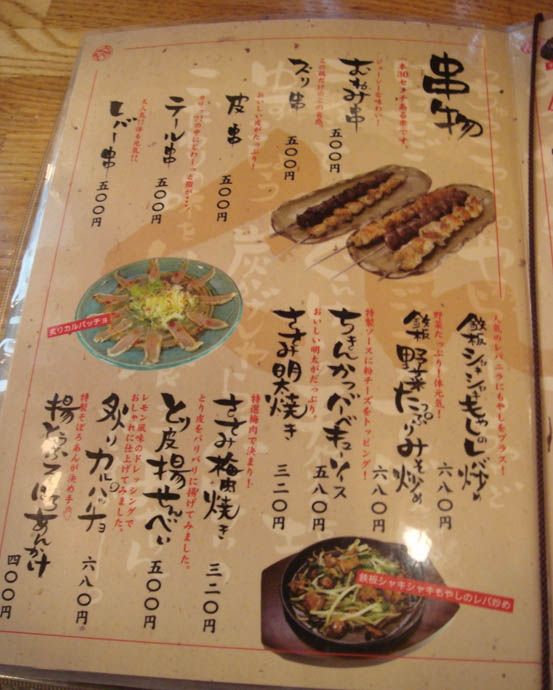 串物
一本30センチある串です。
ジューシーな味わい!
むねみ串
五〇〇円
ズリ串
五〇〇円
おいしい皮がたっぷり!
皮串
五〇〇円
テール串
五〇〇円
大人気!体も元気!!
レバー串
五〇〇円
人気のレバニラにもやしをプラス!
鉄板シャキシャキもやしのレバ炒め
六八〇円
野菜たっぷり!体元気!
鉄板野菜たっぷりみそ炒め
六八〇円
特製ソースに粉チーズをトッピング!
ちきんかつバーベキューソース
五八〇円
おいしい明太がたっぷり。
ささみ明太焼き
三二〇円
特選梅肉で決まり!
ささみ梅肉焼き
三二〇円
とり皮をパリパリに揚げてみました。
とり皮揚せんべい
五〇〇円
レモン風味のドレッシングで
おしゃれに仕上げてみました。
炙りカルパッチョ
六八〇円
特製そぼろあんが決め手
揚とうふそぼろあんかけ
四〇〇円
炙りカルパッチョ
鉄板シャキシャキもやしのレバ炒め